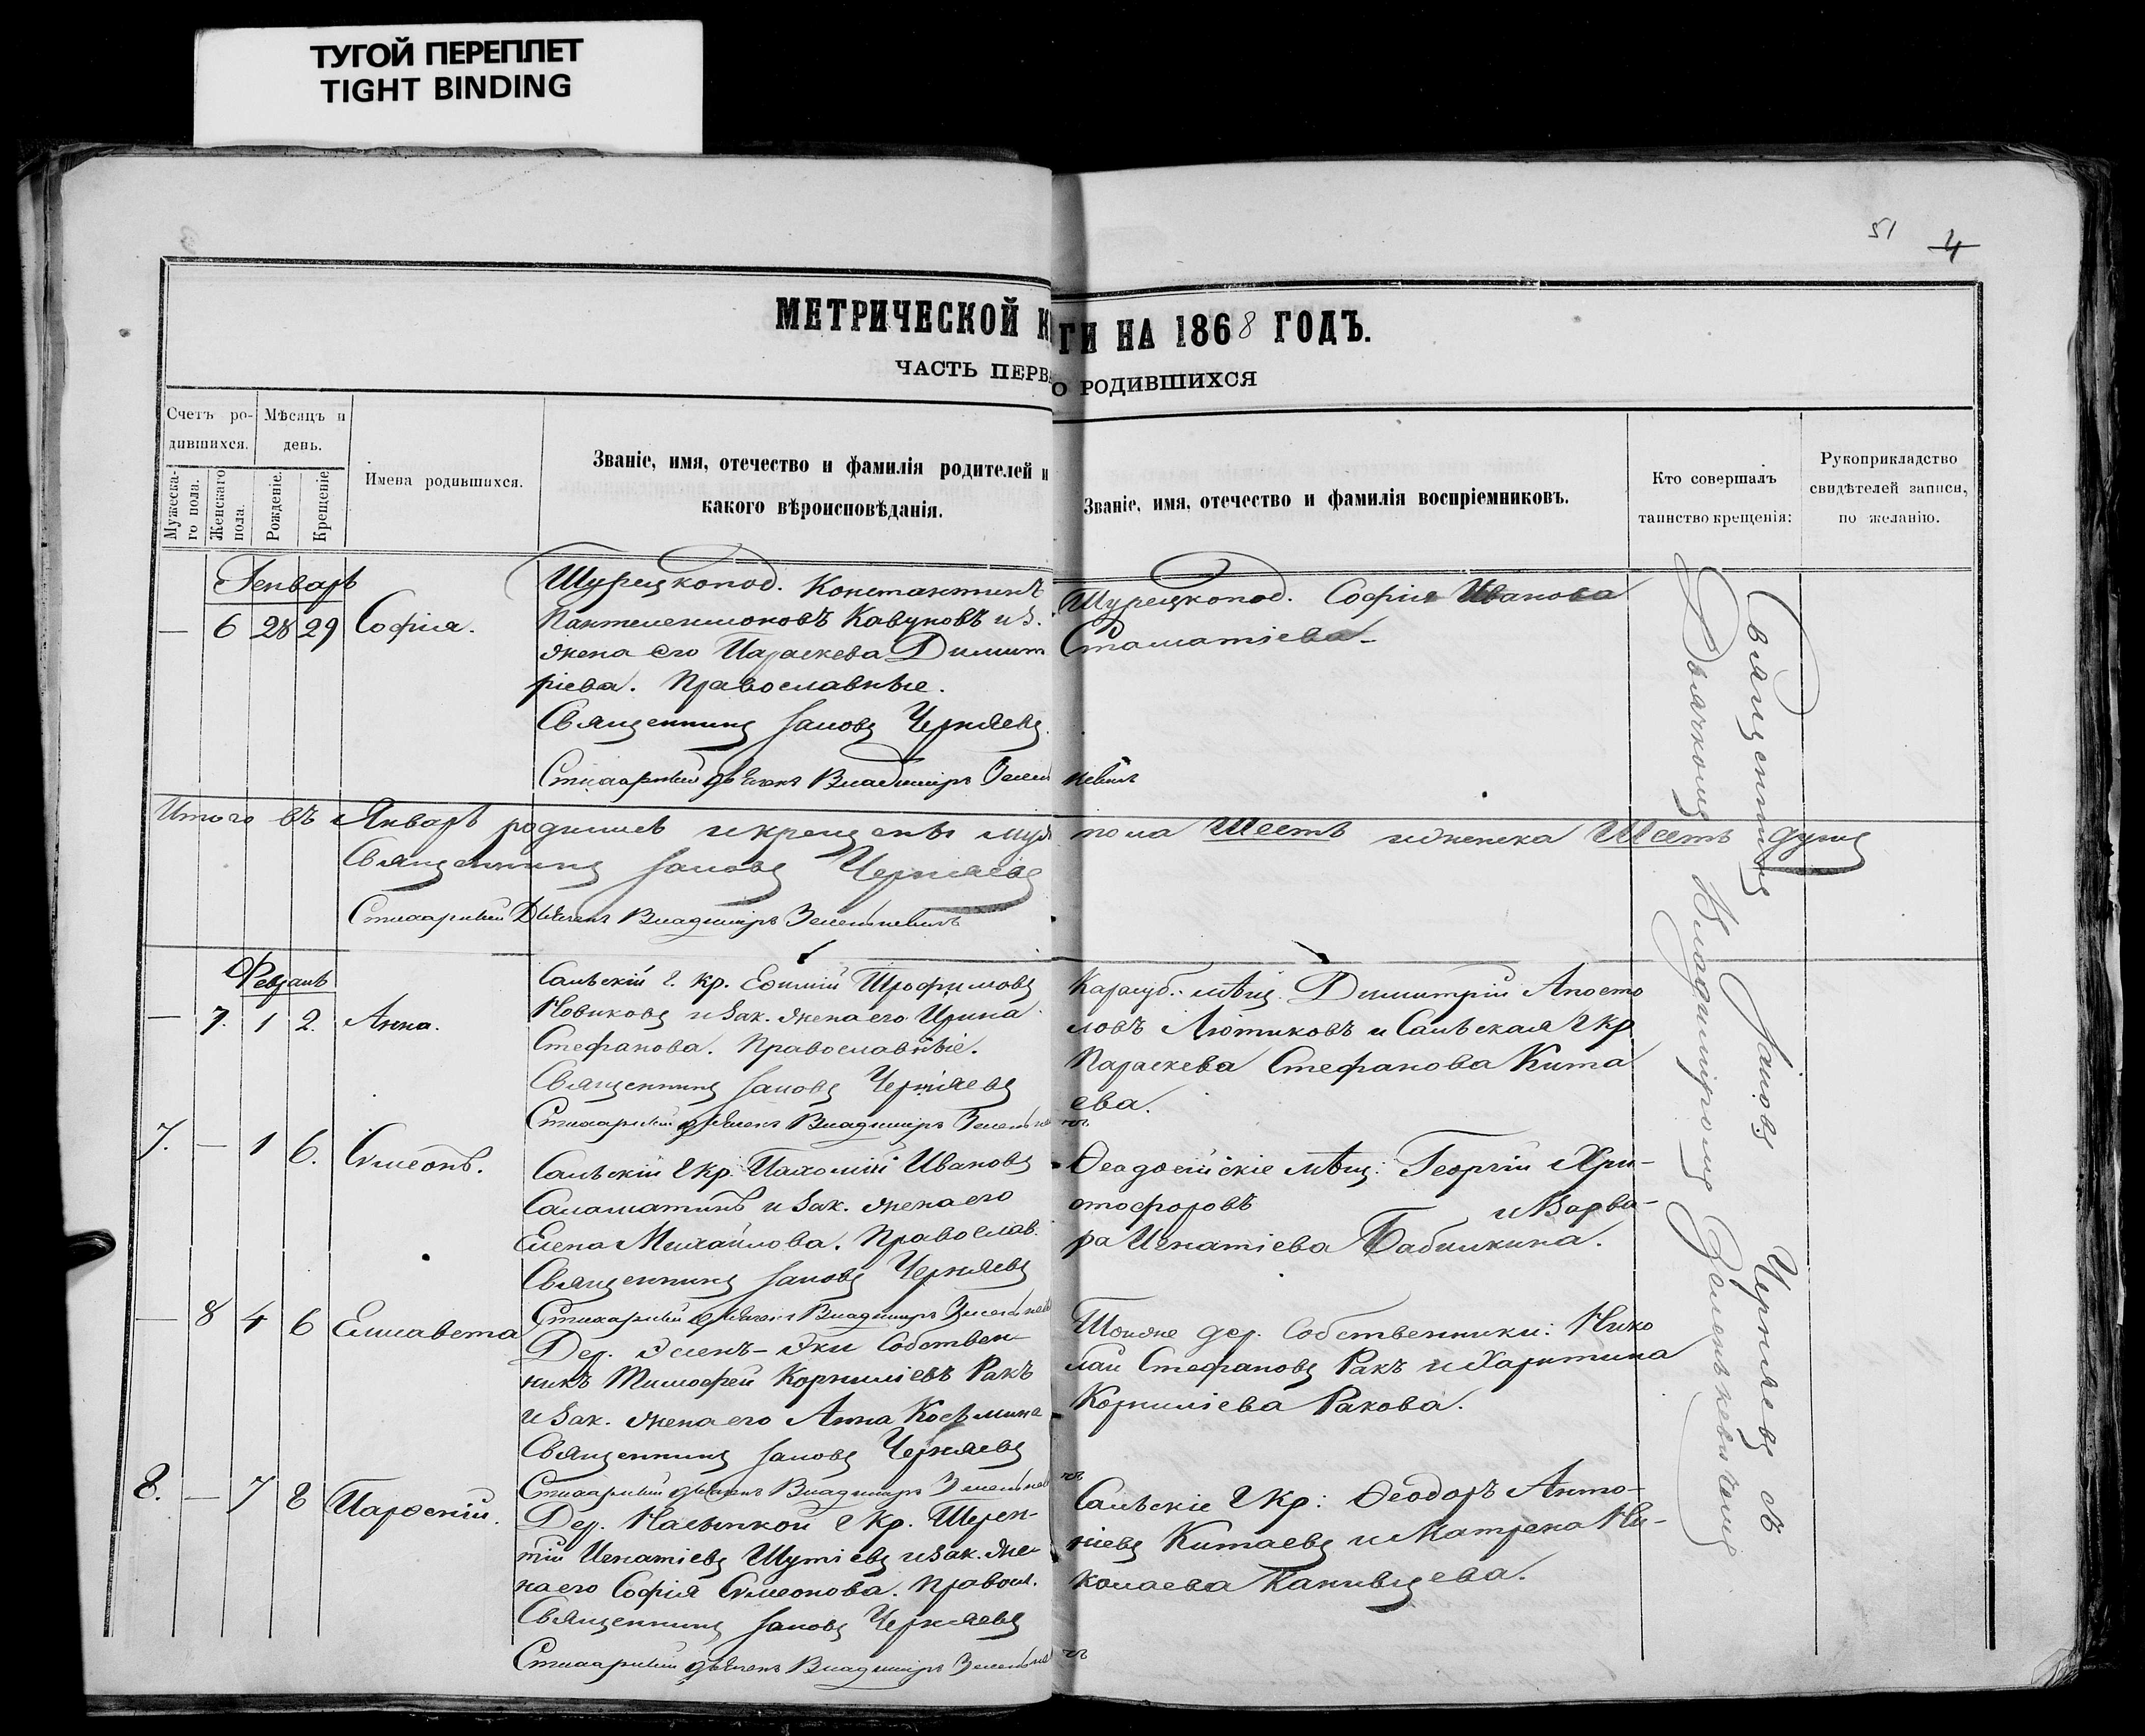 ТУГОЙ ПЕРЕПЛЕТ
TIGHT BINDING
51 4
МЕТРИЧЕСКОЙ К
ГИ НА 1868 ГОДЪ.
ЧАСТЬ ПЕРВ
О РОДИВШИХСЯ
Счетъ ро-
дившихся.
Мѣсяцъ и
день.
Мужеска-
го пола.
Женскаго
пола.
Рожденіе.
Крещеніе
Имена родившихся.
Званіе, имя, отечество и фамилія родителей и
какого вѣроисповѣданія.
Званіе, имя, отечество и фамилія воспріемниковъ.
Кто совершалъ
таинство крещенія:
Рукоприкладство
свидѣтелей записи,
по желанію.
Генварь
— 6 28 29 Софія.
Турецкопод. Константинъ
Пантелеимоновъ Кавуновъ и з.
жена его Параскева Димит
ріева. Православные.
Священникъ Іаковъ Черняевъ
Стихарный дьячекъ Владиміръ Зелен
Турецкопод. Софія Иванова
Стаматіева
кевичъ
Итого въ Январѣ родились и крещены муж
пола Шесть и женска Шесть душъ
Священникъ Іаковъ Черняевъ
Стихарный Дьячекъ Владиміръ Зеленкевичъ
— 7. 1 2. Анна.
Сальскій г. кр. Евѳимій Трофимовъ
Новиковъ и зак. жена его Ирина
Стефанова. Православные.
Священникъ Іаковъ Черняевъ
Стихарный дьячекъ Владиміръ Зеленке
Карасуб. мѣщ. Димитрій Апосто
ловъ Лютиковъ и Сальская г кр
Параскева Стефанова Кита
ева.
чъ
7. — 1 6. Сѵмеонъ.
Сальскій г кр. Пахомій Ивановъ
Саламатинъ и зак. жена его
Елена Михайлова. Православ.
Священникъ Іаковъ Черняевъ
Стихарный дьячекъ Владиміръ Зеленкев
Ѳеодосійскіе мѣщ: Георгій Хри-
стофоровъ и Варва-
ра Игнатіева Бабишкина.
— 8 4 6 Елисавета
Дер. Собствен-
никъ Тимофей Корниліевъ Ракъ
и зак. жена его Анна Косьмина
Священникъ Іаковъ Черняевъ
Стихарный дьячекъ Владиміръ Зеленкев
Тойже дер. Собственники: Нико
лай Стефановъ Ракъ и Харитина
Корниліева Ракова.
чъ
8. — 7 8 Парѳеній.
Дер. Насыпкой г кр. Терен-
тій Игнатіевъ и зак. же-
на его Софія Сѵмеонова. Правосл.
Священникъ Іаковъ Черняевъ
Стихарный дьячекъ Владиміръ Зеленке
Сальскіе г кр: Ѳеодоръ Анто-
ніевъ Китаевъ и Матрена Ни-
колаева Канивцева.
чъ
Священникъ Іаковъ Черняевъ съ
Дьячкомъ Владиміромъ Зеленкевичемъ